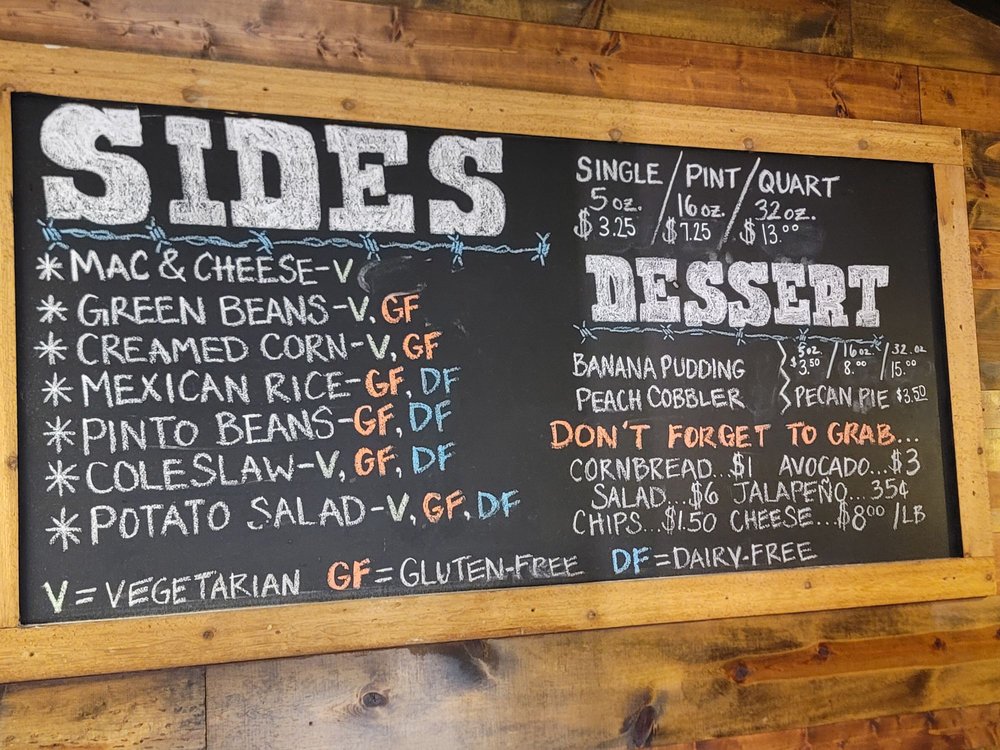 SIDES
*MAC & CHEESE-V
*GREEN BEANS-V, GF
*CREAMED CORN-V, GF
*MEXICAN RICE-GF, DF
*PINTO BEANS-GF, DF
*COLESLAW-V, GF, DF
*POTATO SALAD-V, GF, DF
SINGLE / PINT / QUART
5 oz. / 16 oz. / 32 oz.
$3.25 / $7.25 / $13.00
DESSERT
BANANA PUDDING 5oz. / 16oz. / 32.oz
$3.50 / 8.00 / 15.00
PEACH COBBLER PECAN PIE $3.50
DON'T FORGET TO GRAB...
CORNBREAD...$1 AVOCADO...$3
SALAD...$6 JALAPEÑO...35¢
CHIPS...$1.50 CHEESE...$8.00/LB
V=VEGETARIAN GF=GLUTEN-FREE DF=DAIRY-FREE